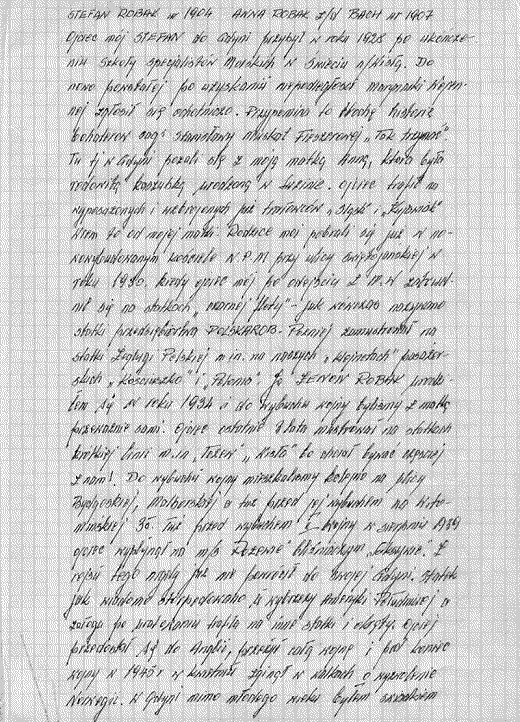 STEFAN ROBAK ur 1904 ANNA ROBAK z/d BACH ur 1907
Ojciec mój STEFAN do Gdyni przybył w roku 1928 po ukończe-
niu Szkoły Specjalistów Morskich w Świeciu n/Wisłą. Do
nowo powstałej po uzyskaniu niepodległości marynarki Wojen-
nej zgłosił się ochotniczo. Przypomina to trochę historię
bohaterów sagi Stanisławy Muskat Fleszarowej "Tak trzymać"
Tu tj w Gdyni poznali się z moją matką Anną, która była
rodowitą kaszubką, urodzoną w Luzinie. Ojciec trafił na
wyposażonych i uzbrojonych już trałowców "Śląsk" i "Kujawiak"
wiem to od mojej matki. Rodzice moi pobrali się już w no-
wowybudowanym kościele N.P.M przy ulicy Świętojańskiej w
roku 1930, kiedy ojciec mój po odejściu z M.W zatrud-
nił się na statkach "czarnej floty" - jak wówczas nazywano
statki przedsiębiorstwa POLSKAROB. Później zamustrował na
statki Żeglugi Polskiej m in. na naszych pasażer-
skich "Kościuszko" i "Polonia". Ja ZENON ROBAK urodzi-
łem się w roku 1934 i do wybuchu wojny byliśmy z matką
przeważnie sami. Ojciec ostatnie lata mustrował na statkach
krótkiej linii m.in. "Tczew", "Wisła" bo chciał bywać częściej
z nami. Do wybuchu wojny mieszkaliśmy kolejno na ulicy
Bydgoskiej, Malborskiej a tuż przed jej wybuchem na Wito-
mińskiej 35. Tuż przed wybuchem wojny w sierpniu 1939
ojciec wypłynął na m/s "Rozewie" bliźniakiem. Z
rejsu tego nigdy już nie powrócił do swojej Gdyni. Statek
jak wiadomo storpedowano u wybrzeży Ameryki Południowej a
załoga po uratowaniu trafiła na inne statki i okręty. Ojciec
przedostał się do Anglii, przeżył całą wojnę i pod koniec
wojny w 1945 r w kwietniu zginął w walkach o wyzwolenie
Norwegii. W Gdyni mimo młodego wieku byłem świadkiem